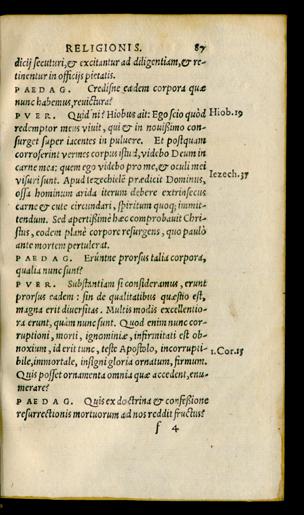 RELIGIONIS. 87
dicij secuturi,& excitantur ad diligentiam,& re-
tinentur in officijs pietatis.
PAEDAG. Credisne eadem corpora quæ
nunc habemus,reuictura?
PVER. Quid ni? Hiobus ait: Ego scio quòd Hiob.19
redemptor meus viuit, qui & in nouissimo con-
surget super iacentes in puluere. Et postquam
corroserint vermes corpus istud,videbo Deum in
carne mea: quem ego videbo pro me,& oculi mei
visuri sunt. Apud Iezechielē prædicit Dominus, Iezech.37
ossa hominum arida iterum debere extrinsecus
carne & cute circundari, spiritum quoq; immit-
tendum. Sed apertißimè hæc comprobauit Chri-
stus, eodem planè corpore resurgens, quo paulò
ante mortem pertulerat.
PAEDAG. Eruntne prorsus talia corpora,
qualia nunc sunt?
PVER. Substantiam si consideramus, erunt
prorsus eadem : sin de qualitatibus quæstio est,
magna erit diuersitas. Multis modis excellentio-
ra erunt, quàm nunc sunt. Quod enim nunc cor-
ruptioni, morti, ignominiæ, infirmitati est ob-
noxium, id erit tunc, teste Apostolo, incorrupti- 1.Cor.15
bile,immortale, insigni gloria ornatum, firmum.
Quis posset ornamenta omnia quæ accedent,enu-
merare?
PAEDAG. Quis ex doctrina & confeßione
resurrectionis mortuorum ad nos reddit fructus?
f 4